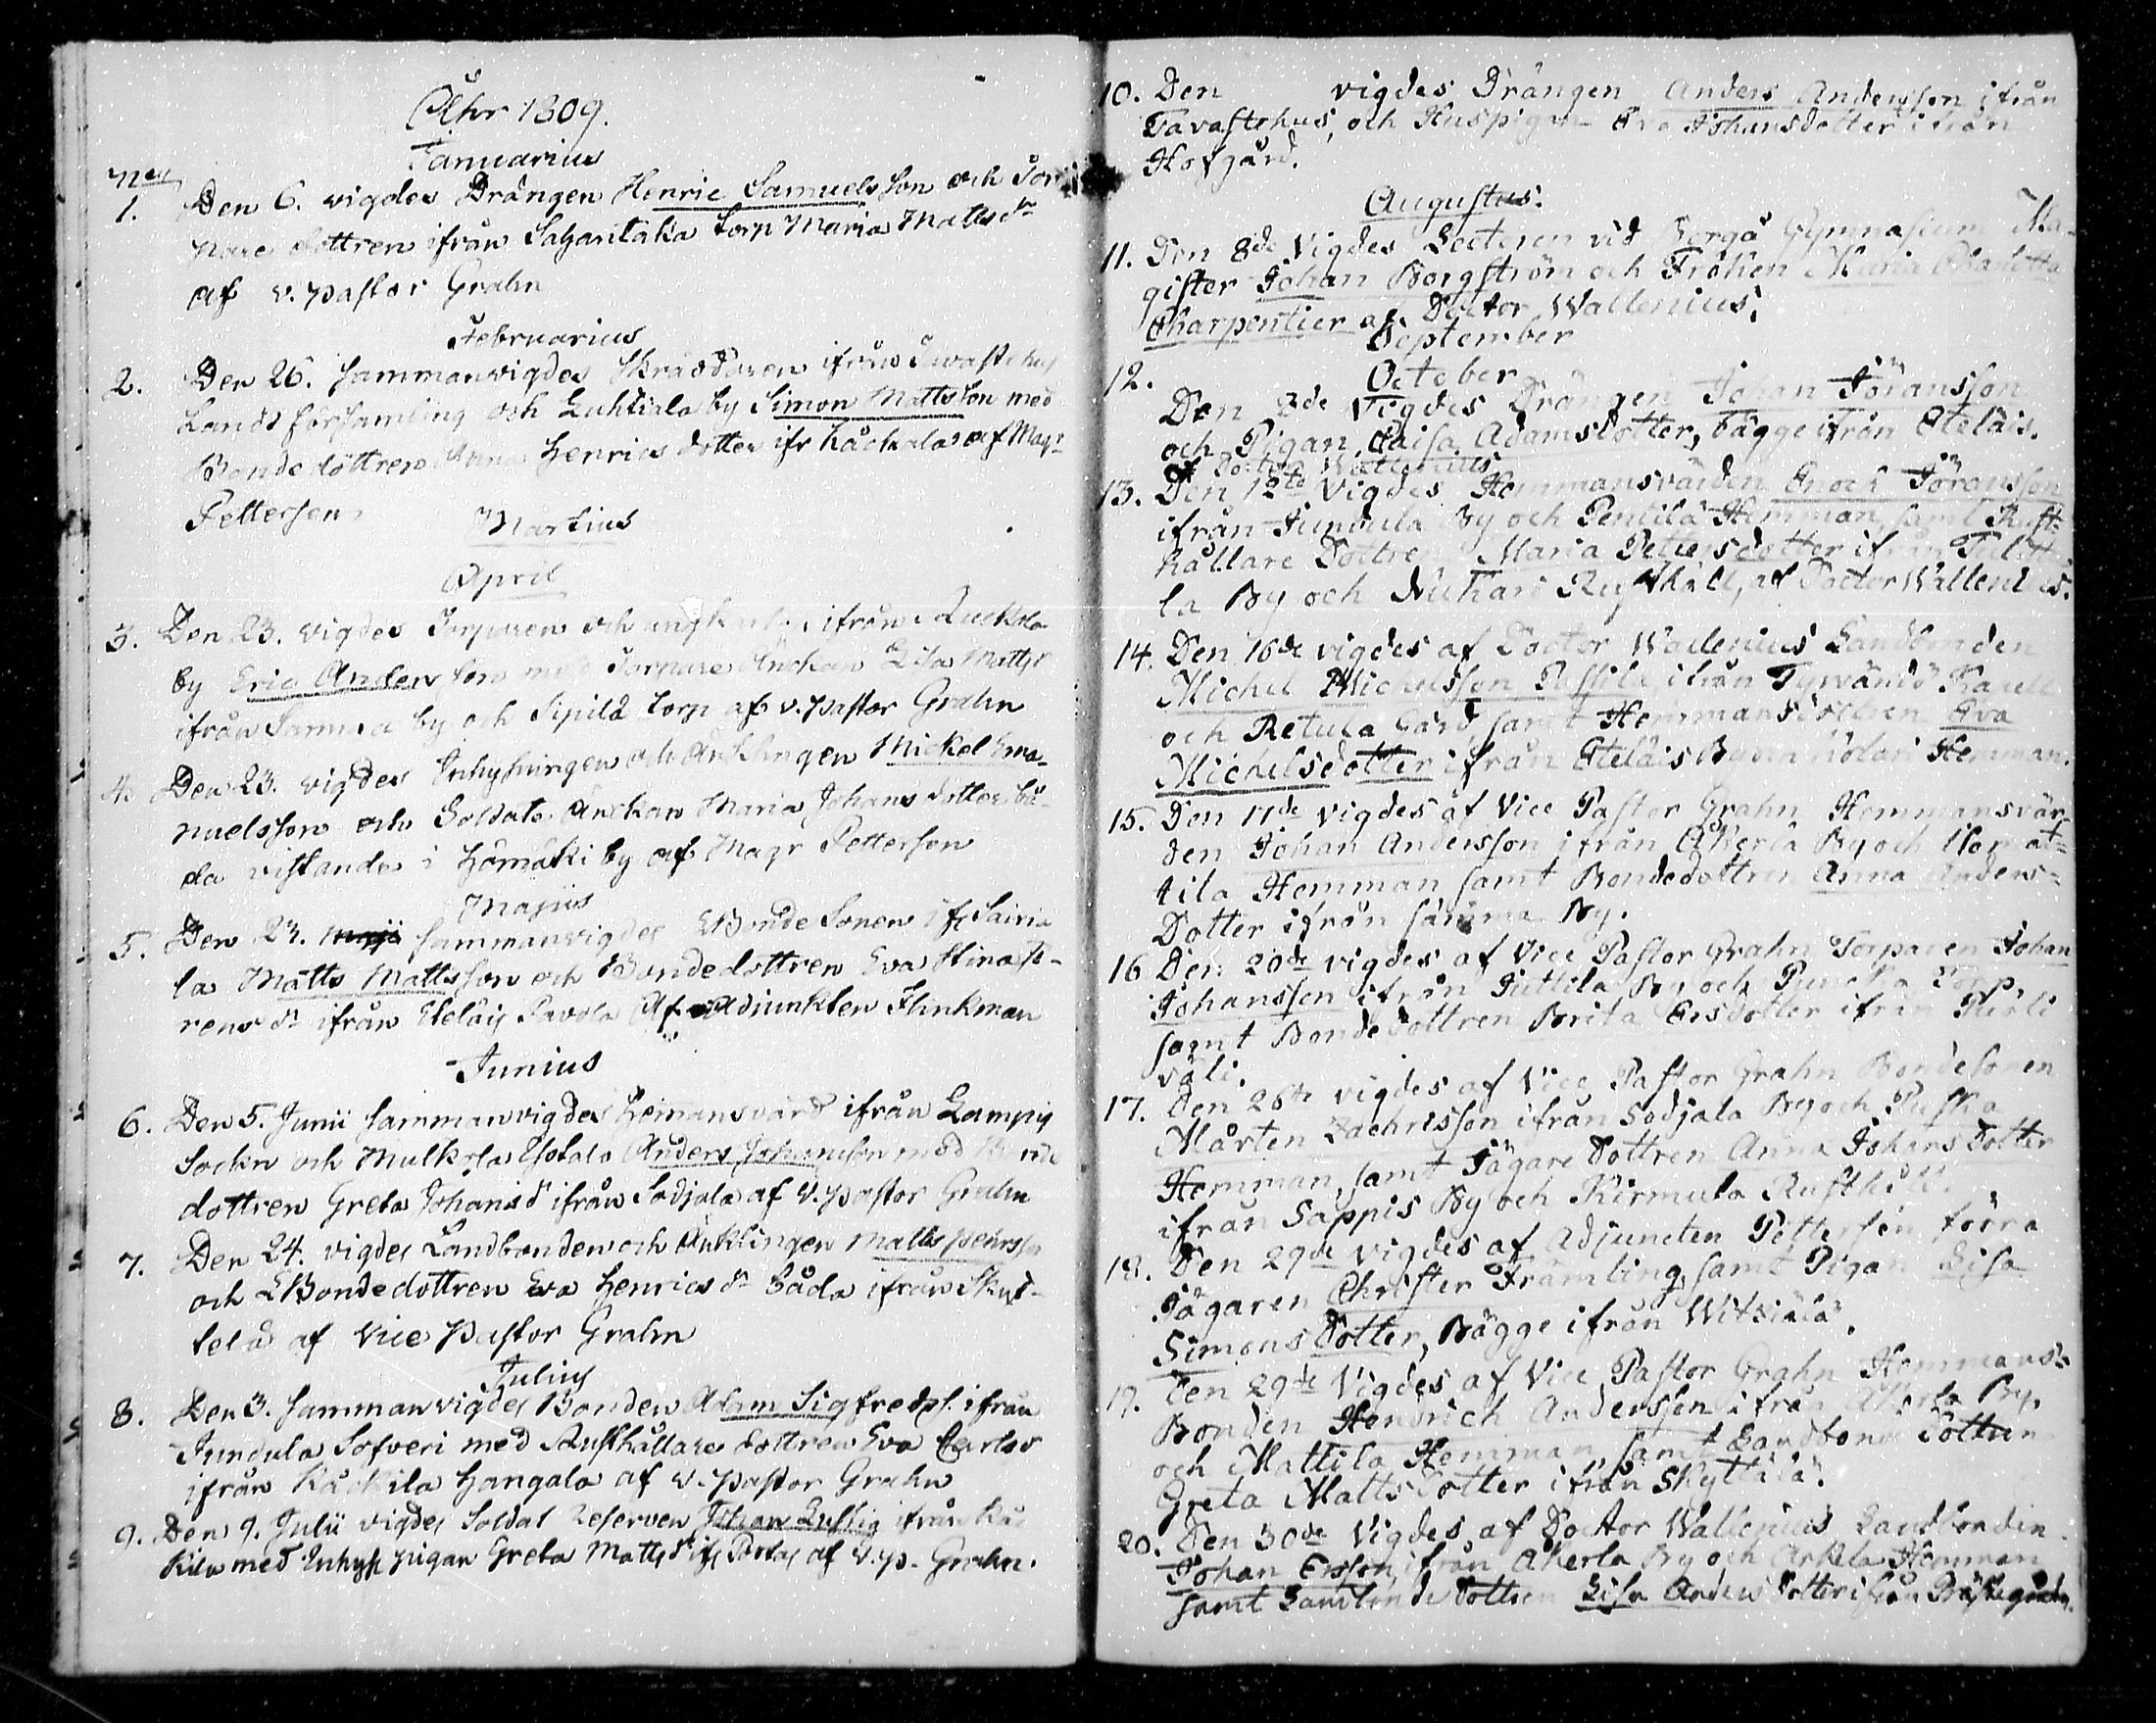 Åhr 1809.
Januarius
N:o
1. Den 6. vigdes Drängen Henric Samuelsson och Tor-
pare dottren ifrån Saharitaka torp Maria Mattsdr
af v. pastor Grahn
Februarius
2. Den 26. sammanvigdes Skräddaren ifrån Tavastehus
Lands församling och Luhtiala by Simon Mattsson med
Bonde dottren Anna Henrics dotter ifr af Magr
Pettersen
Martius
April
3. Den 23. vigdes Torparen och ungkarlen ifrån
by Eric Andersson med Torpare Änckan Lisa Mattsdr
ifrån Samma by och Sipilä torp af v. pastor Grahn
4. Den 23. vigdes Inhysningen och Ancklingen Mickel Ema-
nuelsson och Soldate Änckan Maria Johans dotter bå-
da vistande i by af Magr Pettersen
Majus
5. Den 23. Maji sammanvigdes Bonde Sonen ifr Sairia
la Matts Mattsson och Bondedottren Eva Stina
rens dr ifrån Eteläis Pavola Af Adjunkten Flinkman
Junius
6. Den 5. Junii sammanvigdes Hemansvärd ifrån Lampis
Sockn och Anders Johansson med Bonde
dottren Greta Johansd ifrån Sodjala af V. pastor Grahn
7. Den 24. vigdes Landbonden och Ancklingen Matts
och Bondedottren Eva Henrics dr båda ifrån Skyt-
telä af Vice Pastor Grahn
Julius
8. Den 3. sammanvigdes Bonden Adam Sigfredss. ifrån
Jundula Sofveri med Rusthållare dottren Eva Carlsd
ifrån Hangala af V. pastor Grahn
9. Den 9. Julii vigdes Soldat Reserven Johan Lustig ifrån Kåc
kila med Inhys pigan Greta Mattsd ifr af V. P. Grahn.
10. Den vigdes Drängen Anders Andersson ifrån
Tavastehus, och Huspigan Eva Johansdotter ifrån
Hofgård.
Augustus.
11. Den 8de Vigdes Lectoren vid Borgå Gymnasium Ma-
gister Johan Borgström och Fröken Maria Charlotta
Charpentier af Doctor Wallenius.
September
October
12. Den 2de Vigdes Drängen Johan Jöransson
och Pigan Caisa Adamsdotter, bägge ifrån Eteläis.
af Doctor Wallenius
13. Den 12te Vigdes Hemmansvärden Enoch Jöransson
ifrån Jundula By och Penttilä Hemman, samt Rust-
hållare Dottren Maria Pettersdotter ifrån
la By och Rusthåll, af Doctor Wallenius.
14. Den 16de vigdes af Doctor Wallenius Landbonden
Michel Michelsson Passila ifrån Tyrvändö
och Retula Gård, samt Hemmansdottren Eva
Michelsdotter ifrån Eteläis By och Uotari Hemman.
15. Den 17de vigdes af Vice Pastor Grahn Hemmansvär-
den Johan Andersson ifrån Åkerla By och
tila Hemman samt Bondedottren Anna Anders-
Dotter ifrån samma By.
16. Den 20de vigdes af Vice Pastor Grahn Torparen Johan
Johansson ifrån By och Torp,
samt Bonde Dottren Brita Ersdotter ifrån
väli.
17. Den 26te vigdes af Vice Pastor Grahn Bondesonen
Mårten Zachrisson ifrån Sodjala By och
Hemman, samt Jägare Dottren Anna Johans Dotter
ifrån Sappis By och Kirmula Rusthåll.
18. Den 29de vigdes af Adjuncten Pettersen förra
Jägaren Christer Främling, samt Pigan Lisa
Simons Dotter, Bägge ifrån Witsiälä.
19. Den 29de Vigdes af Vice Pastor Grahn Hemmans-
Bonden Hendrich Andersson ifrån Åkerla By,
och Mattila Hemman, samt Landbonde Dottren
Greta Matts Dotter ifrån Skyttälä.
20. Den 30de Vigdes af Doctor Wallenius Landbonden
Johan Ersson, ifrån Åkerla By och Hemman
samt Landbonde Dottren Lisa Anders Dotter ifrån Prästegården.